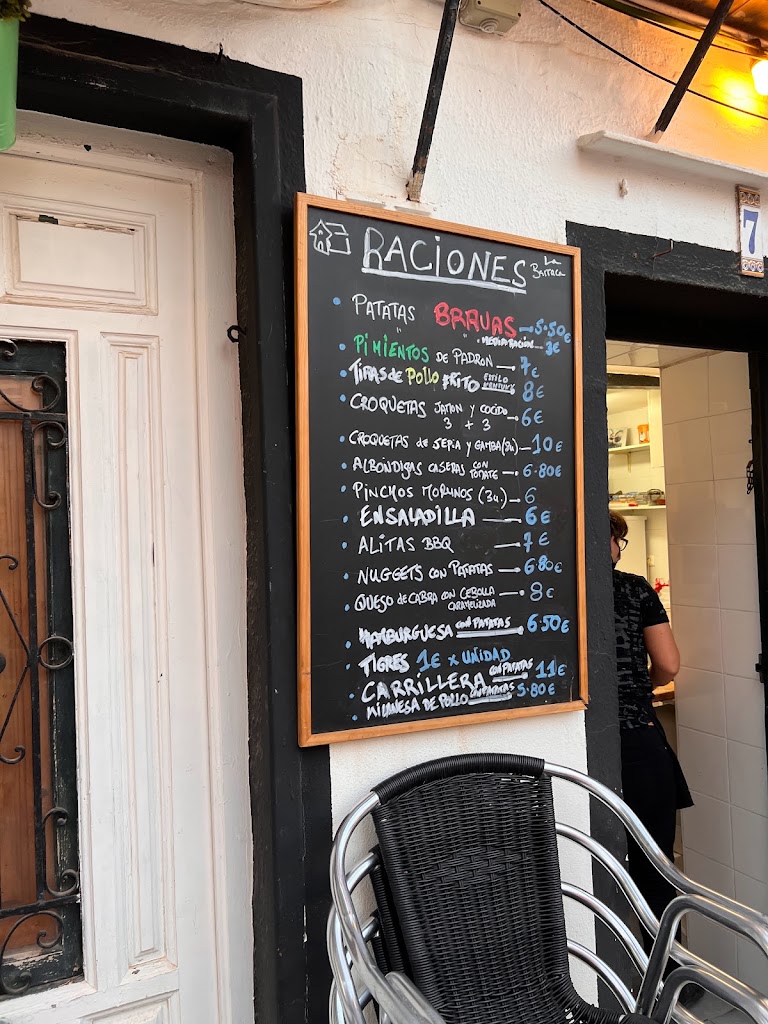 RACIONES
La Barraca
PATATAS BRAVAS — 5.50€
" " MEDIA RACIÓN — 3€
PIMIENTOS DE PADRON — 7€
TIRAS de POLLO FRITO ESTILO KENTUKY 8€
CROQUETAS JAMON y COCIDO — 6€
3 + 3
CROQUETAS de SEPIA y GAMBA (8u) — 10€
ALBONDIGAS CASERAS CON TOMATE — 6.80€
PINCHOS MORUNOS (3u.) — 6
ENSALADILLA — 6€
ALITAS BBQ — 7€
NUGGETS CON PATATAS — 6.80€
QUESO de CABRA CON CEBOLLA CARAMELIZADA — 8€
HAMBURGUESA CON PATATAS 6.50€
TIGRES 1€ x UNIDAD
CARRILLERA CON PATATAS 11€
MILANESA DE POLLO CON PATATAS 5.80€
7